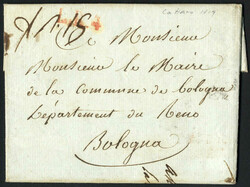 A Monsieur
Monsieur le Maire
de la Commune de bologna
Département du Reno
Bologna